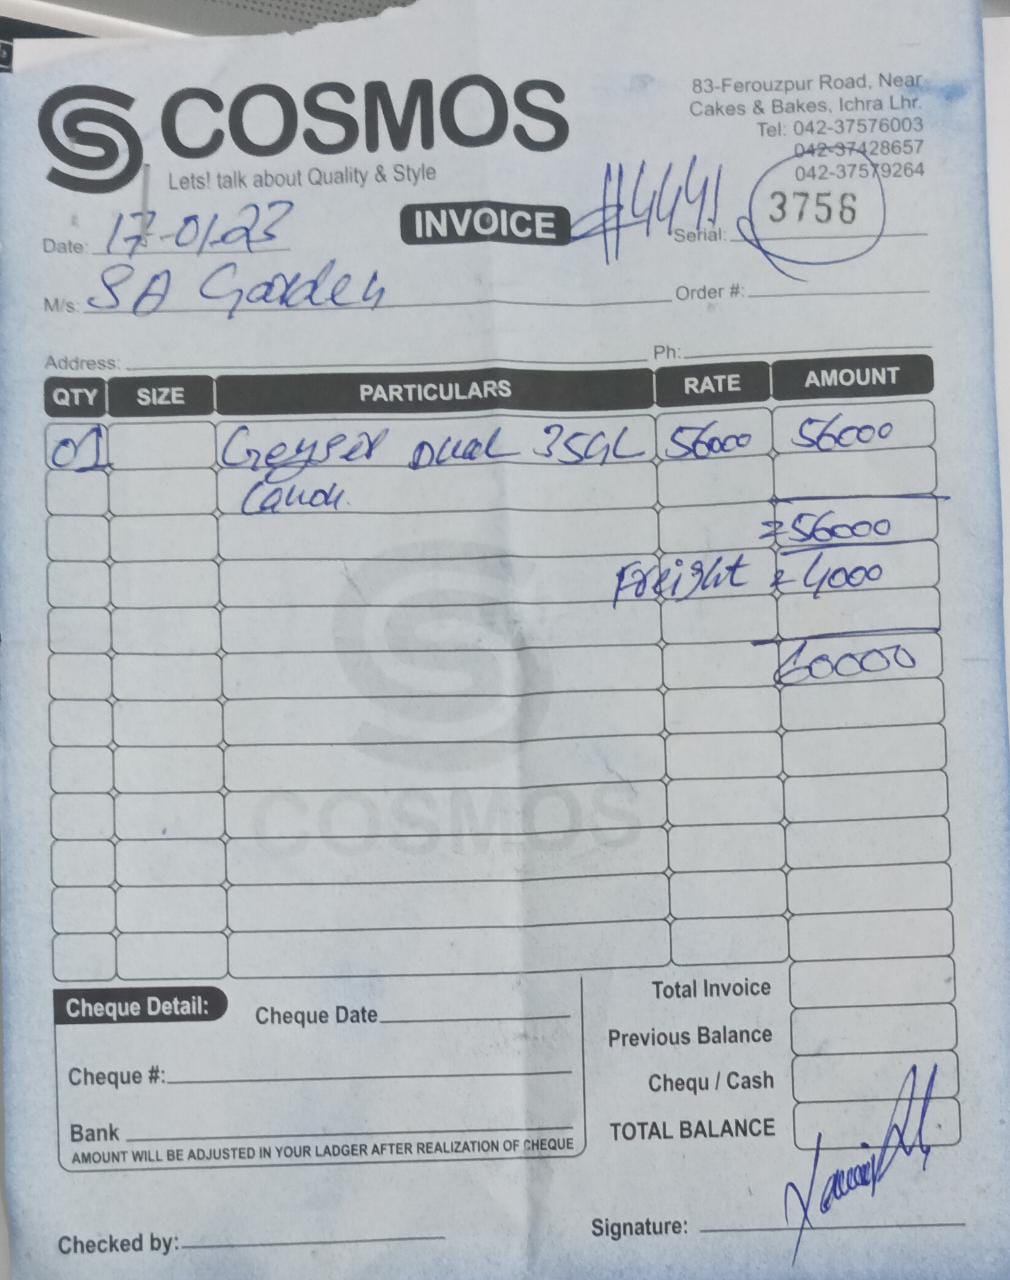 COSMOS
Lets! talk about Quality & Style
83-Ferouzpur Road, Near
Cakes & Bakes, Ichra Lhr.
Tel: 042-37576003
042-37428657
042-37579264
INVOICE #4441 Serial: 3756
Date: 17-01-23
M/s: SA Garden Order #:
Address: Ph:
QTY SIZE PARTICULARS RATE AMOUNT
01 Geyser Dual 35GL 56000 56000
= 56000
Freight = 4000
60000
COSMOS
Cheque Detail: Cheque Date
Cheque #:
Bank
AMOUNT WILL BE ADJUSTED IN YOUR LADGER AFTER REALIZATION OF CHEQUE
Total Invoice
Previous Balance
Chequ / Cash
TOTAL BALANCE
Checked by: Signature: